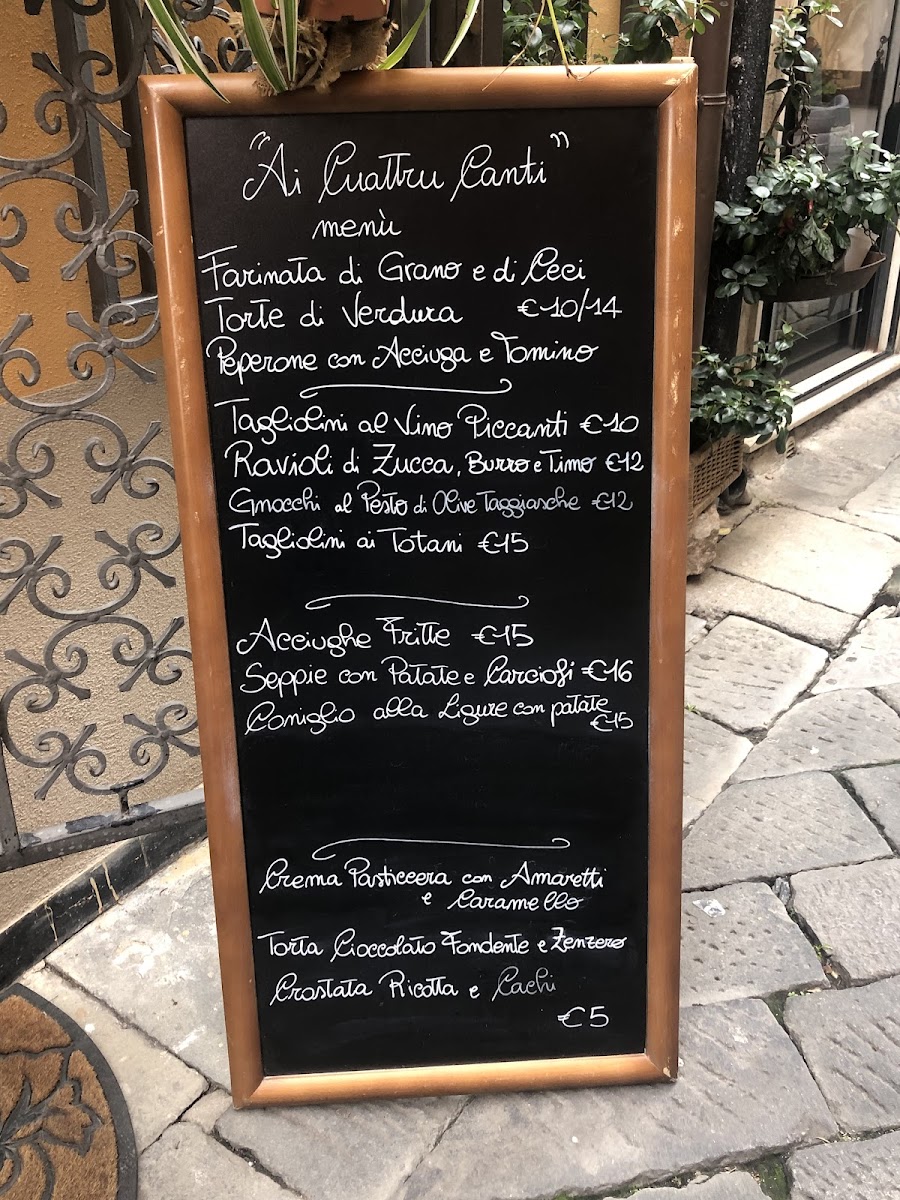 "Ai Cuattru Canti"
menù
Farinata di Grano e di Ceci
Torte di Verdura €10/14
Peperone con Acciuga e Tomino
Tagliolini al Vino Piccanti €10
Ravioli di Zucca, Burro e Timo €12
Gnocchi al Pesto di Olive Taggiasche €12
Tagliolini ai Totani €15
Acciughe Fritte €15
Seppie con Patate e Carciofi €16
Coniglio alla Ligure con patate
€15
Crema Pasticcera con Amaretti
e Caramello
Torta Cioccolato Fondente e Zenzero
Crostata Ricotta e Cachi
€5